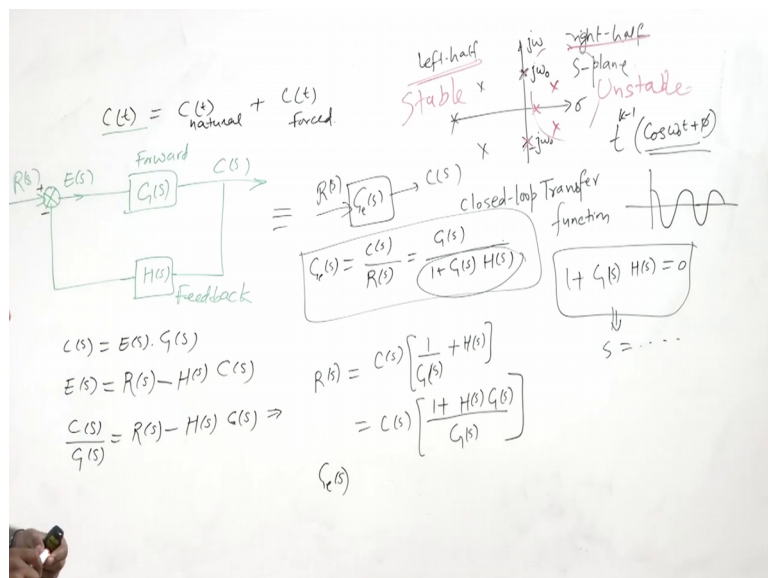 left-half
Stable
jω
jω₀
-jω₀
σ
right-half
S-plane
Unstable
t^{k-1} (Cosω₀t+φ)
C(t) = C(t) natural + C(t) forced
R(s)
+
-
E(s)
Forward
G(s)
C(s)
H(s)
Feedback
=
R(s)
Gₑ(s)
C(s)
closed-loop Transfer
function
Gₑ(s) = C(s)/R(s) = G(s)/(1+G(s) H(s))
1+ G(s) H(s) = 0
⇓
s = ....
C(s) = E(s). G(s)
E(s) = R(s) - H(s) C(s)
C(s)/G(s) = R(s) - H(s) C(s) ⇒
R(s) = C(s) [1/G(s) + H(s)]
= C(s) [(1+ H(s) G(s))/G(s)]
Gₑ(s)